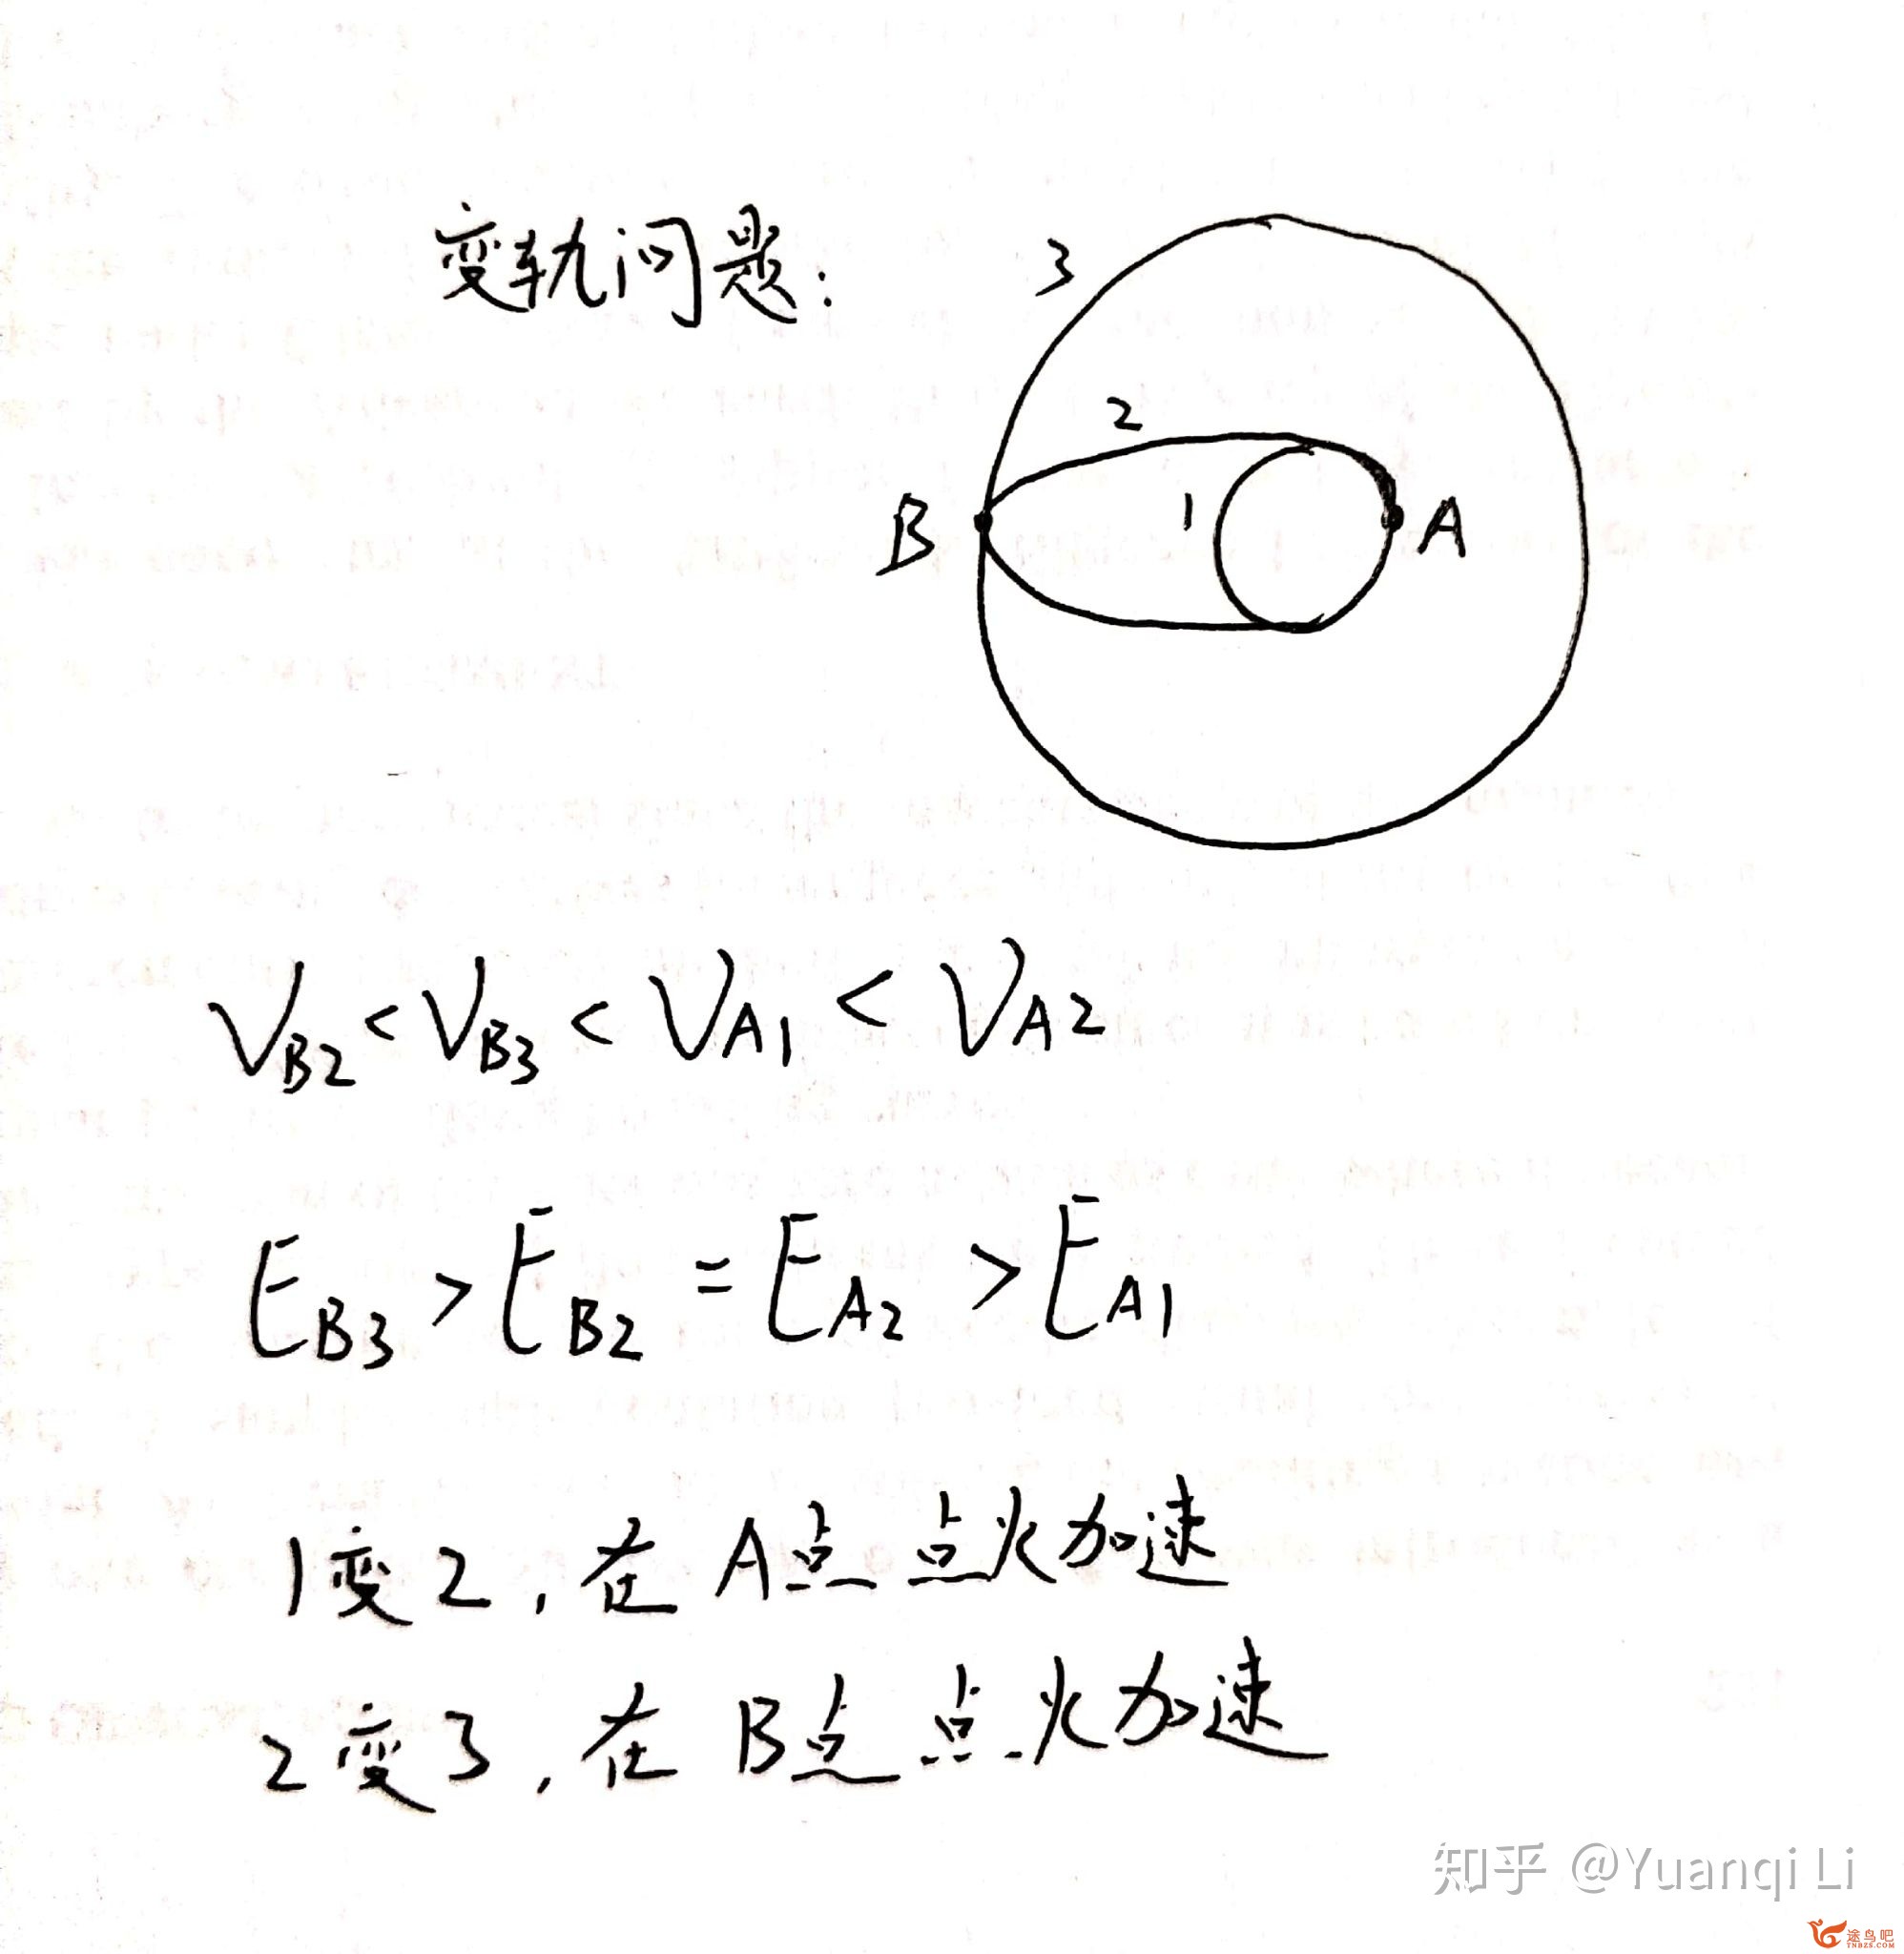 变轨问题:
3
2
B
1
A
VB2 < VB3 < VA1 < VA2
EB3 > EB2 = EA2 > EA1
1变2,在A点点火加速
2变3,在B点点火加速
知乎 @Yuanqi Li
途鸟吧
TNBZS.COM